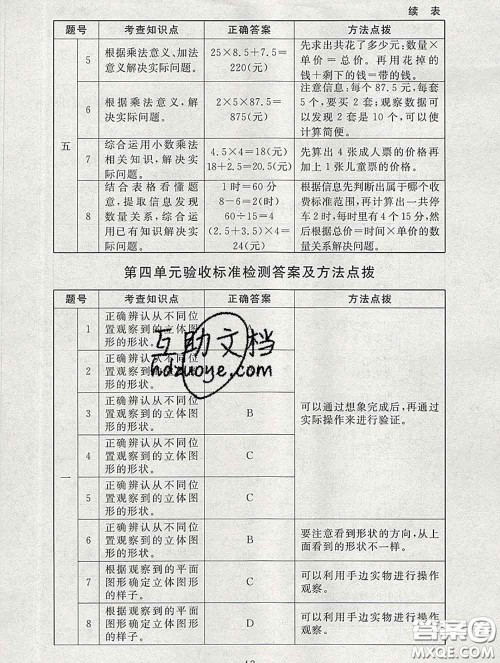 续 表
题号 考查知识点 正确答案 方法点拨
五
5 根据乘法意义、加法
意义解决实际问题。
25×8.5+7.5=
220(元)
先求出共花了多少元:数量×
单价=总价。再用花掉的
钱+剩下的钱=带的钱。
6 根据乘法意义,解
决实际问题。
2×5×87.5=
875(元)
注意信息:每个87.5元,每套
5个,要买2套;观察数据可
以发现2套是10个,可以使
计算简便。
7 综合运用小数乘法
相关知识,解决实
际问题。
4.5×4=18(元)
18+2.5=20.5(元)
先算出4张成人票的价格再
加上1张儿童票的价格。
8 结合表格看懂题
意,提取信息发现
数量关系,综合运
用已有知识解决实
际问题。
1时=60分
8-6=2(时)
60÷15=4
(2.5+3.5)×4
=24(元)
根据信息先判断出属于哪个收
费标准范围,再计算出一共停
车2时,每时里有4个15分,然
后根据总价=时间×单价的数
量关系解决问题。
第四单元验收标准检测答案及方法点拨
题号 考查知识点 正确答案 方法点拨
一
1 正确辨认从不同位
置观察到的立体图
形的形状。
2 正确辨认从不同位
置观察到的立体图
形的形状。
3 正确辨认从不同位
置观察到的立体图
形的形状。
B
4 正确辨认从不同位
置观察到的立体图
形的形状。
C
5 正确辨认从不同位
置观察到的立体图
形的形状。
C
可以通过想象完成后,再通过
实际操作来进行验证。
6 正确辨认从不同位
置观察到的立体图
形的形状。
B
要注意看到形状的方向,从上
面看到的形状不一样。
7 根据观察到的平面
图形确定立体图形
的样子。
C
可以利用手边实物进行操作
观察。
8 根据观察到的平面
图形确定立体图形
的样子。
D
可以利用手边实物进行操作
观察。
互助文档
hdzuoye.com
答案圈
MXQE.COM